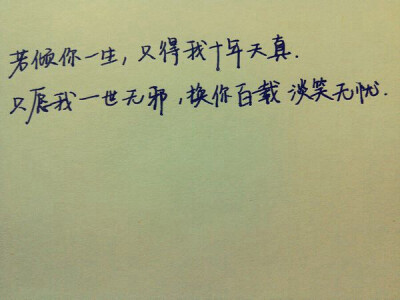 若倾你一生，只得我十年天真.
只愿我一世无邪，换你百载 淡笑无忧.